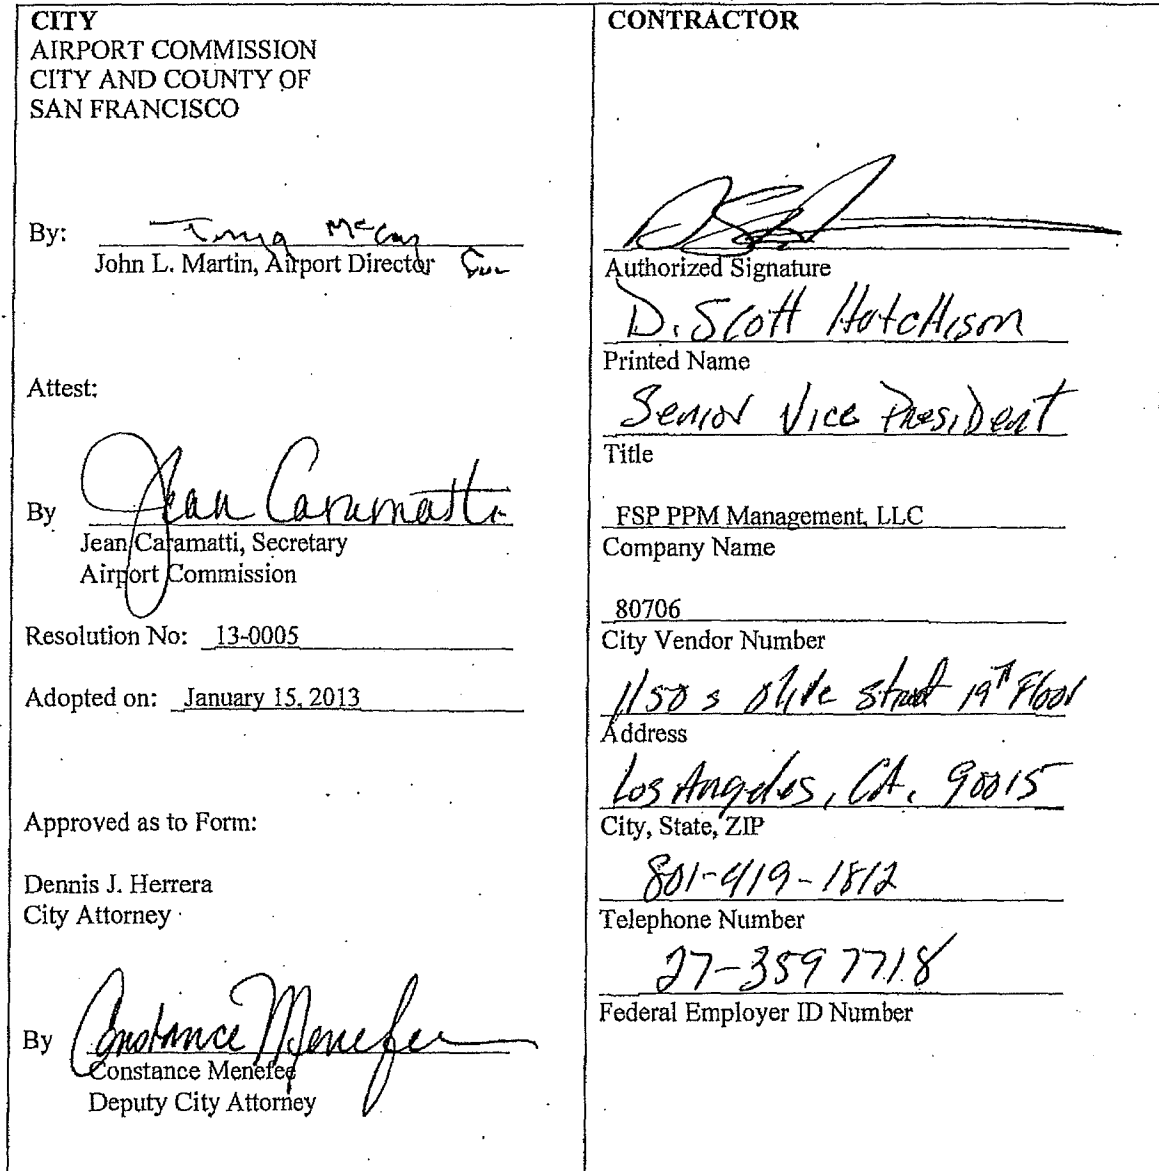 CITY
AIRPORT COMMISSION
CITY AND COUNTY OF
SAN FRANCISCO
By:
John L. Martin, Airport Director
Attest:
By Jean Caramatti
Jean Caramatti, Secretary
Airport Commission
Resolution No: 13-0005
Adopted on: January 15, 2013
Approved as to Form:
Dennis J. Herrera
City Attorney
By Constance Menefee
Constance Menefee
Deputy City Attorney
CONTRACTOR
Authorized Signature
D. Scott Hutchison
Printed Name
Senior Vice President
Title
FSP PPM Management, LLC
Company Name
80706
City Vendor Number
1150 s Olive Street 19th Floor
Address
Los Angeles, CA. 90015
City, State, ZIP
801-419-1812
Telephone Number
27-3597718
Federal Employer ID Number